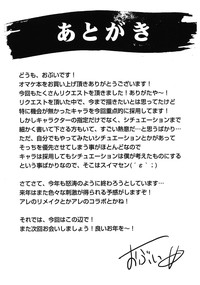 あとがき
どうも、おぶいです！
オマケ本をお買い上げ頂きありがとうございます！
今回もたくさんリクエストを頂きました！ありがたや～！
リクエストを頂いた中で、今まで描きたいとは思ってたけど
特に機会が無かったキャラを今回重点的に採用してます！
しかしキャラクターの指定だけでなく、シチュエーションまで
細かく書いて下さる方もいて、すごい熱意だ…と思うばかり…
ただ、自分でもやってみたいシチュエーションとかがあって
そっちを優先させてしまう事ばかりなんどよなので
キャラは採用してもシチュエーションは僕が考えたものにする
という事ばかりなので、そこはスイマセン(´ε｀；)
さてさて、今年も怒濤のように終わろうとしています…
来年はまた色々な刺激が得られる予感がしますぞ！
アレのリメイクとかアレのコラボとかね！
それでは、今回はこの辺で！
また次回お会いしましょう！良いお年を～！
おぶい